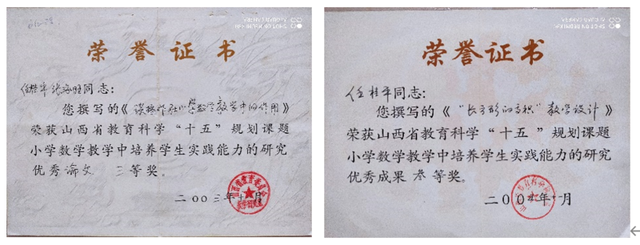 荣誉证书
同志：
您撰写的《
荣获山西省教育科学“十五”规划课题
小学数学教学中培养学生实践能力的研究
优秀论文 三等奖。
二00三年 月
荣誉证书
任桂平同志：
您撰写的《“长方形的面积”教学设计》
荣获山西省教育科学“十五”规划课题
小学数学教学中培养学生实践能力的研究
优秀成果 叁等奖。
二00 年 月